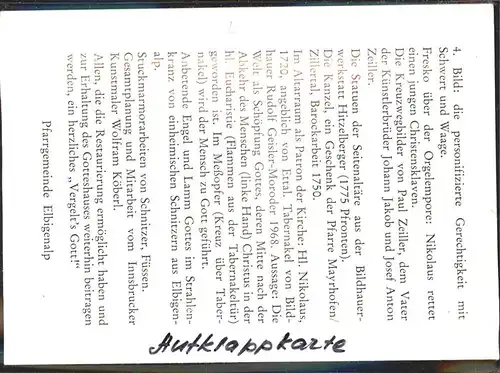 4. Bild: die personifizierte Gerechtigkeit mit
Schwert und Waage.
Fresko über der Orgelempore: Nikolaus rettet
einen jungen Christensklaven.
Die Kreuzwegbilder von Paul Zeiller, dem Vater
der Künstlerbrüder Johann Jakob und Josef Anton
Zeiller.
Die Statuen der Seitenaltäre aus der Bildhauer-
werkstatt Hitzelberger (1775 Pfronten).
Die Kanzel, ein Geschenk der Pfarre Mayrhofen/
Zillertal, Barockarbeit 1750.
Im Altarraum als Patron der Kirche: Hl. Nikolaus,
1720, angeblich von Ettal. Tabernakel von Bild-
hauer Rudolf Geisler-Moroder 1968. Aussage: Die
Welt als Schöpfung Gottes, deren Mitte nach der
Abkehr des Menschen (linke Hand) Christus in der
hl. Eucharistie (Flammen aus der Tabernakeltür)
geworden ist. Im Meßopfer (Kreuz über Taber-
nakel) wird der Mensch zu Gott geführt.
Anbetende Engel und Lamm Gottes im Strahlen-
kranz von einheimischen Schnitzern aus Elbigen-
alp.
Stuckmarmorarbeiten von Schnitzer, Füssen.
Gesamtplanung und Mitarbeit vom Innsbrucker
Kunstmaler Wolfram Köberl.
Allen, die die Restaurierung ermöglicht haben und
zur Erhaltung des Gotteshauses weiterhin beitragen
werden, ein herzliches „Vergelt's Gott!"
Pfarrgemeinde Elbigenalp
Aufklappkarte